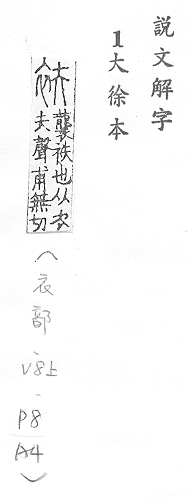 説文解字
1大徐本
衭
襲袂也从衣
夫聲甫無切
(衣部、V8上、P8
A4)